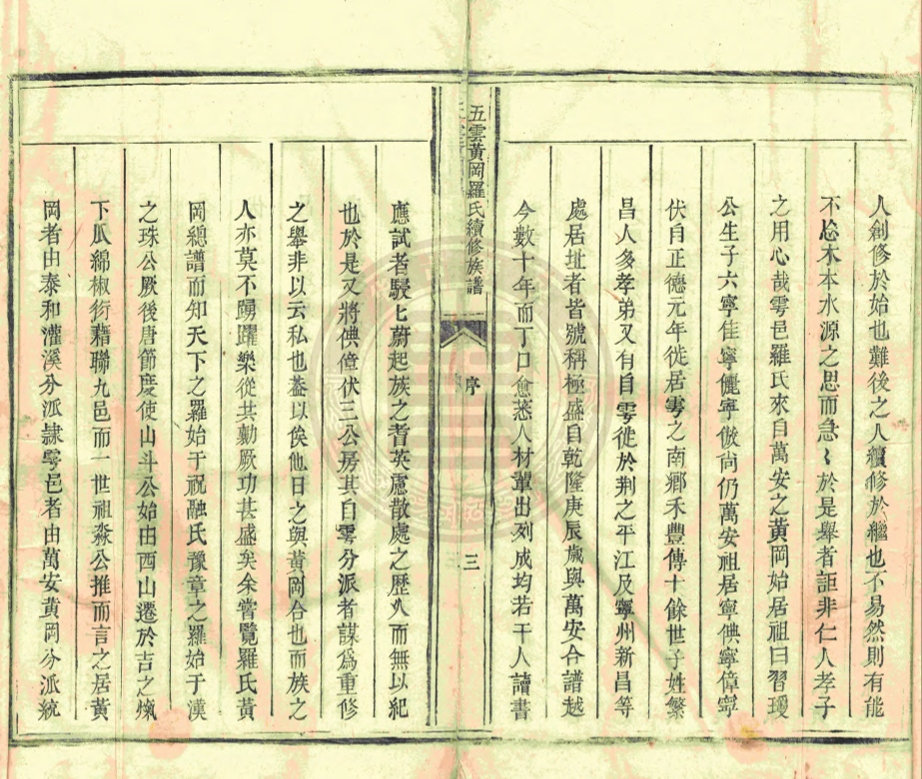 人創修於始也難後之人續修於繼也不易然則有能
不忘木本水源之思而急〻於是舉者詎非仁人孝子
之用心哉雩邑羅氏來自萬安之黃岡始居祖曰習璦
公生子六寧佳寧儷寧倣尚仍萬安祖居寧倎寧偉寧
伏自正德元年徙居雩之南鄉禾豐傳十餘世子姓繁
昌人多孝弟又有自雩徙於荆之平江及寧州新昌等
處居址者皆號稱極盛自乾隆庚辰歲與萬安合譜越
今數十年而丁口愈蒸人材輩出列成均若干人讀書
五雲黃岡羅氏續修族譜
序
三
應試者駸〻蔚起族之耆英慮散處之歷久而無以紀
也於是又將倎偉伏三公房其自雩分派者謀爲重修
之舉非以云私也葢以俟他日之與黃岡合也而族之
人亦莫不踴躍樂從共勷厥功甚盛矣余嘗覽羅氏黃
岡總譜而知天下之羅始于祝融氏豫章之羅始于漢
之珠公厥後唐節慶使山斗公始由西山遷於吉之
下瓜綿椒衍藉聯九邑而一世祖淼公推而言之居黃
岡者由泰和灌溪分派隸雩邑者由萬安黃岡分派統